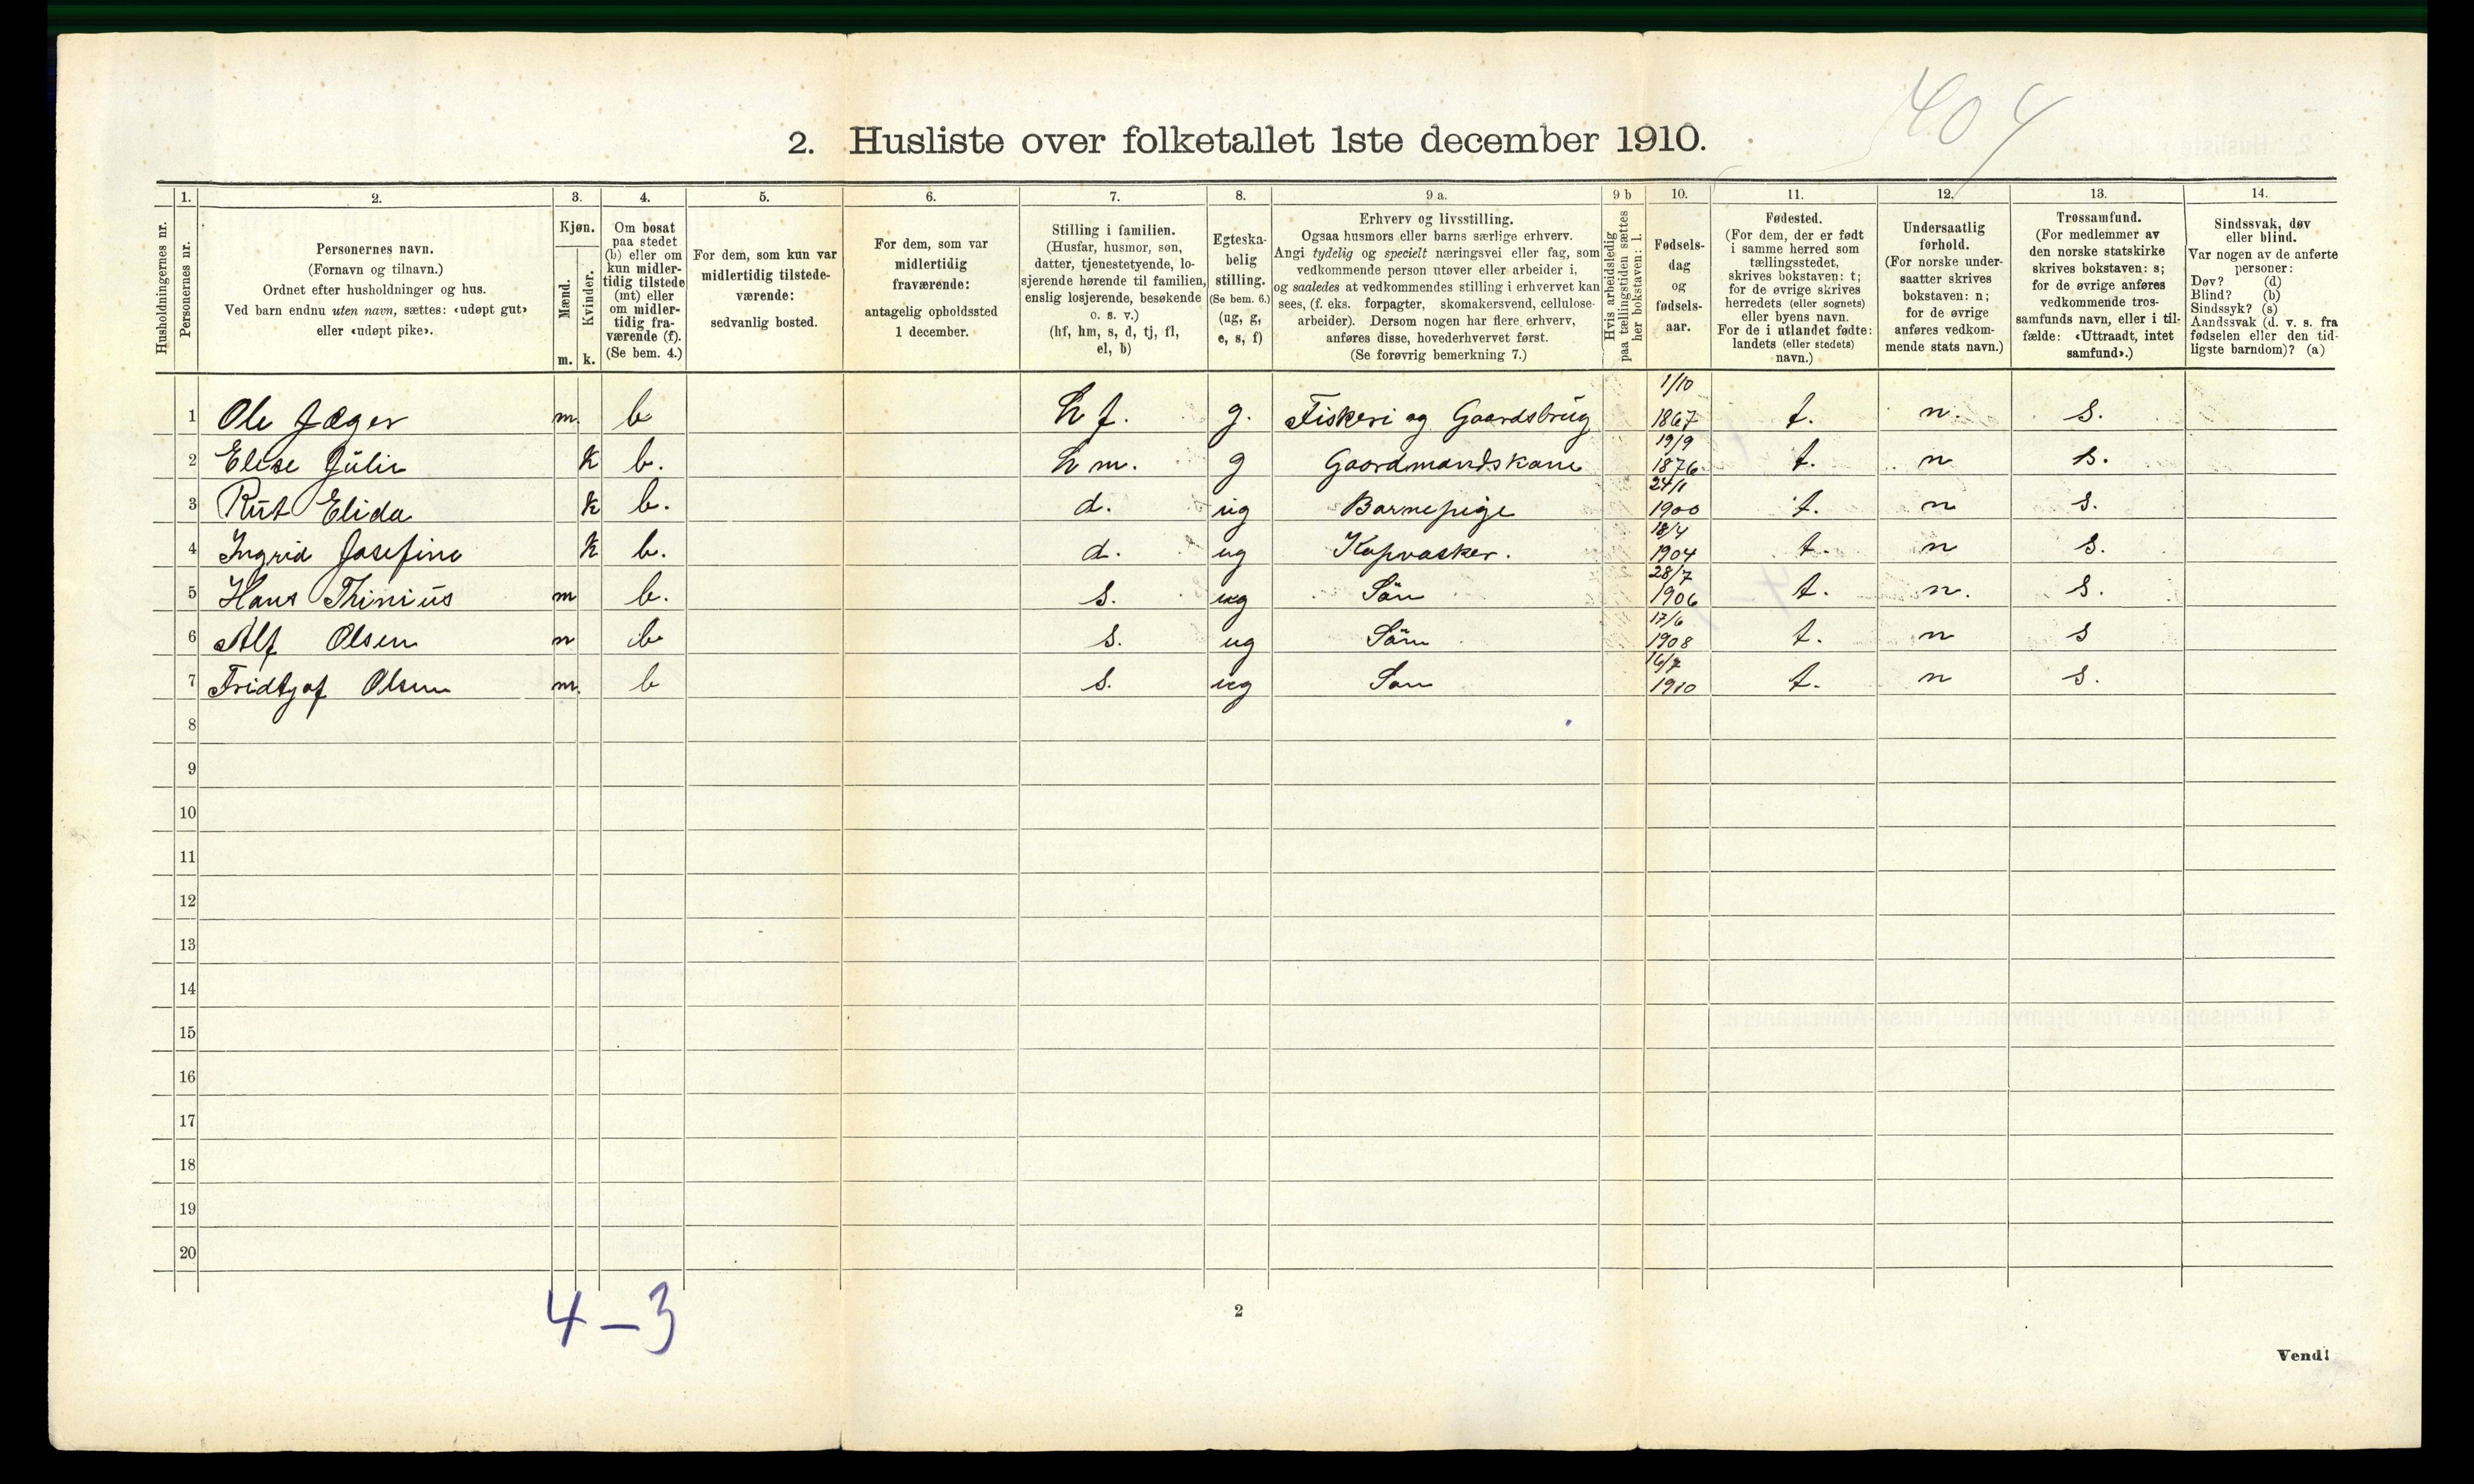 404
2. Husliste over folketallet 1ste december 1910.
Husholdningernes nr.
1. Personernes nr.
2. Personernes navn.
(Fornavn og tilnavn.)
Ordnet efter husholdninger og hus.
Ved barn endnu uten navn, sættes: «udøpt gut»
eller «udøpt pike».
3. Kjøn.
Mænd. m.
Kvinder. k.
4. Om bosat
paa stedet
(b) eller om
kun midler-
tidig tilstede
(mt) eller
om midler-
tidig fra-
værende (f).
(Se bem. 4.)
5. For dem, som kun var
midlertidig tilstede-
værende:
sedvanlig bosted.
6. For dem, som var
midlertidig
fraværende:
antagelig opholdssted
1 december.
7. Stilling i familien.
(Husfar, husmor, søn,
datter, tjenestetyende, lo-
sjerende hørende til familien,
enslig losjerende, besøkende
o. s. v.)
(hf, hm, s, d, tj, fl,
el, b)
8. Egteska-
belig
stilling.
(Se bem. 6.)
(ug, g,
e, s, f)
9 a. Erhverv og livsstilling.
Ogsaa husmors eller barns særlige erhverv.
Angi tydelig og specielt næringsvei eller fag, som
vedkommende person utøver eller arbeider i,
og saaledes at vedkommendes stilling i erhvervet kan
sees, (f. eks. forpagter, skomakersvend, cellulose-
arbeider). Dersom nogen har flere erhverv,
anføres disse, hovederhvervet først.
(Se forøvrig bemerkning 7.)
9 b Hvis arbeidsledig
paa tællingstiden sættes
her bokstaven: l.
10. Fødsels-
dag
og
fødsels-
aar.
11. Fødested.
(For dem, der er født
i samme herred som
tællingsstedet,
skrives bokstaven: t;
for de øvrige skrives
herredets (eller sognets)
eller byens navn.
For de i utlandet fødte:
landets (eller stedets)
navn.)
12. Undersaatlig
forhold.
(For norske under-
saatter skrives
bokstaven: n;
for de øvrige
anføres vedkom-
mende stats navn.)
13. Trossamfund.
(For medlemmer av
den norske statskirke
skrives bokstaven: s;
for de øvrige anføres
vedkommende tros-
samfunds navn, eller i til-
fælde: «Uttraadt, intet
samfund».)
14. Sindssvak, døv
eller blind.
Var nogen av de anførte
personer:
Døv? (d)
Blind? (b)
Sindssyk? (s)
Aandssvak (d. v. s. fra
fødselen eller den tid-
ligste barndom)? (a)
1 Ole Jæger m. b hf. g. Fiskeri og Gaardsbrug 1/10 1867 t. n. s.
2 Elise Julie K b. hm. g Gaardmandskone 19/9 1876 t. n s.
3 Rut Elida K b. d. ug Barnepige 24/1 1900 t. n s.
4 Ingrid Josefine K b. d. ug Kopvasker. 18/4 1904 t. n s.
5 Hans Thinius m b. s. ug Sön 28/7 1906 t. n. s.
6 Alf Olsen m b s. ug Sön 17/6 1908 t. n s
7 Fridtjof Olsen m. b s. ug Son 16/7 1910 t. n s.
8
9
10
11
12
13
14
15
16
17
18
19
20
4 – 3
2
Vend!